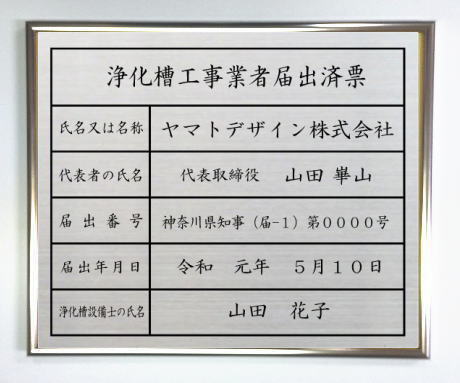 浄化槽工事業者届出済票
氏名又は名称 ヤマトデザイン株式会社
代表者の氏名 代表取締役 山田 崋山
届出番号 神奈川県知事（届-1）第0000号
届出年月日 令和 元年 5月10日
浄化槽設備士の氏名 山田 花子